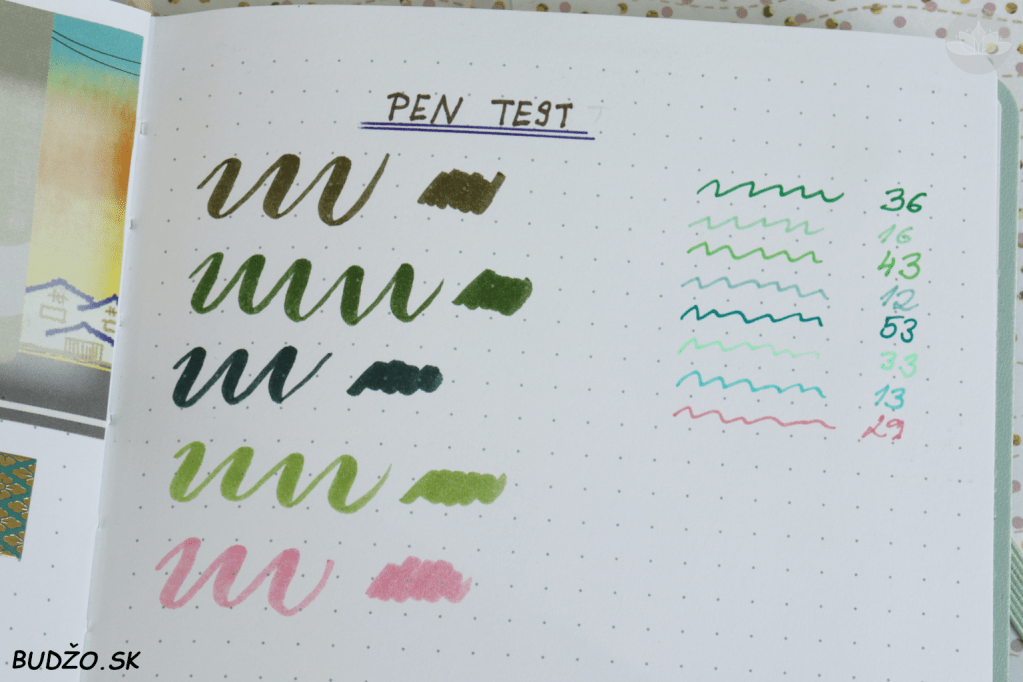 PEN TEST
36
16
43
12
53
33
13
29
BUDŽO.SK